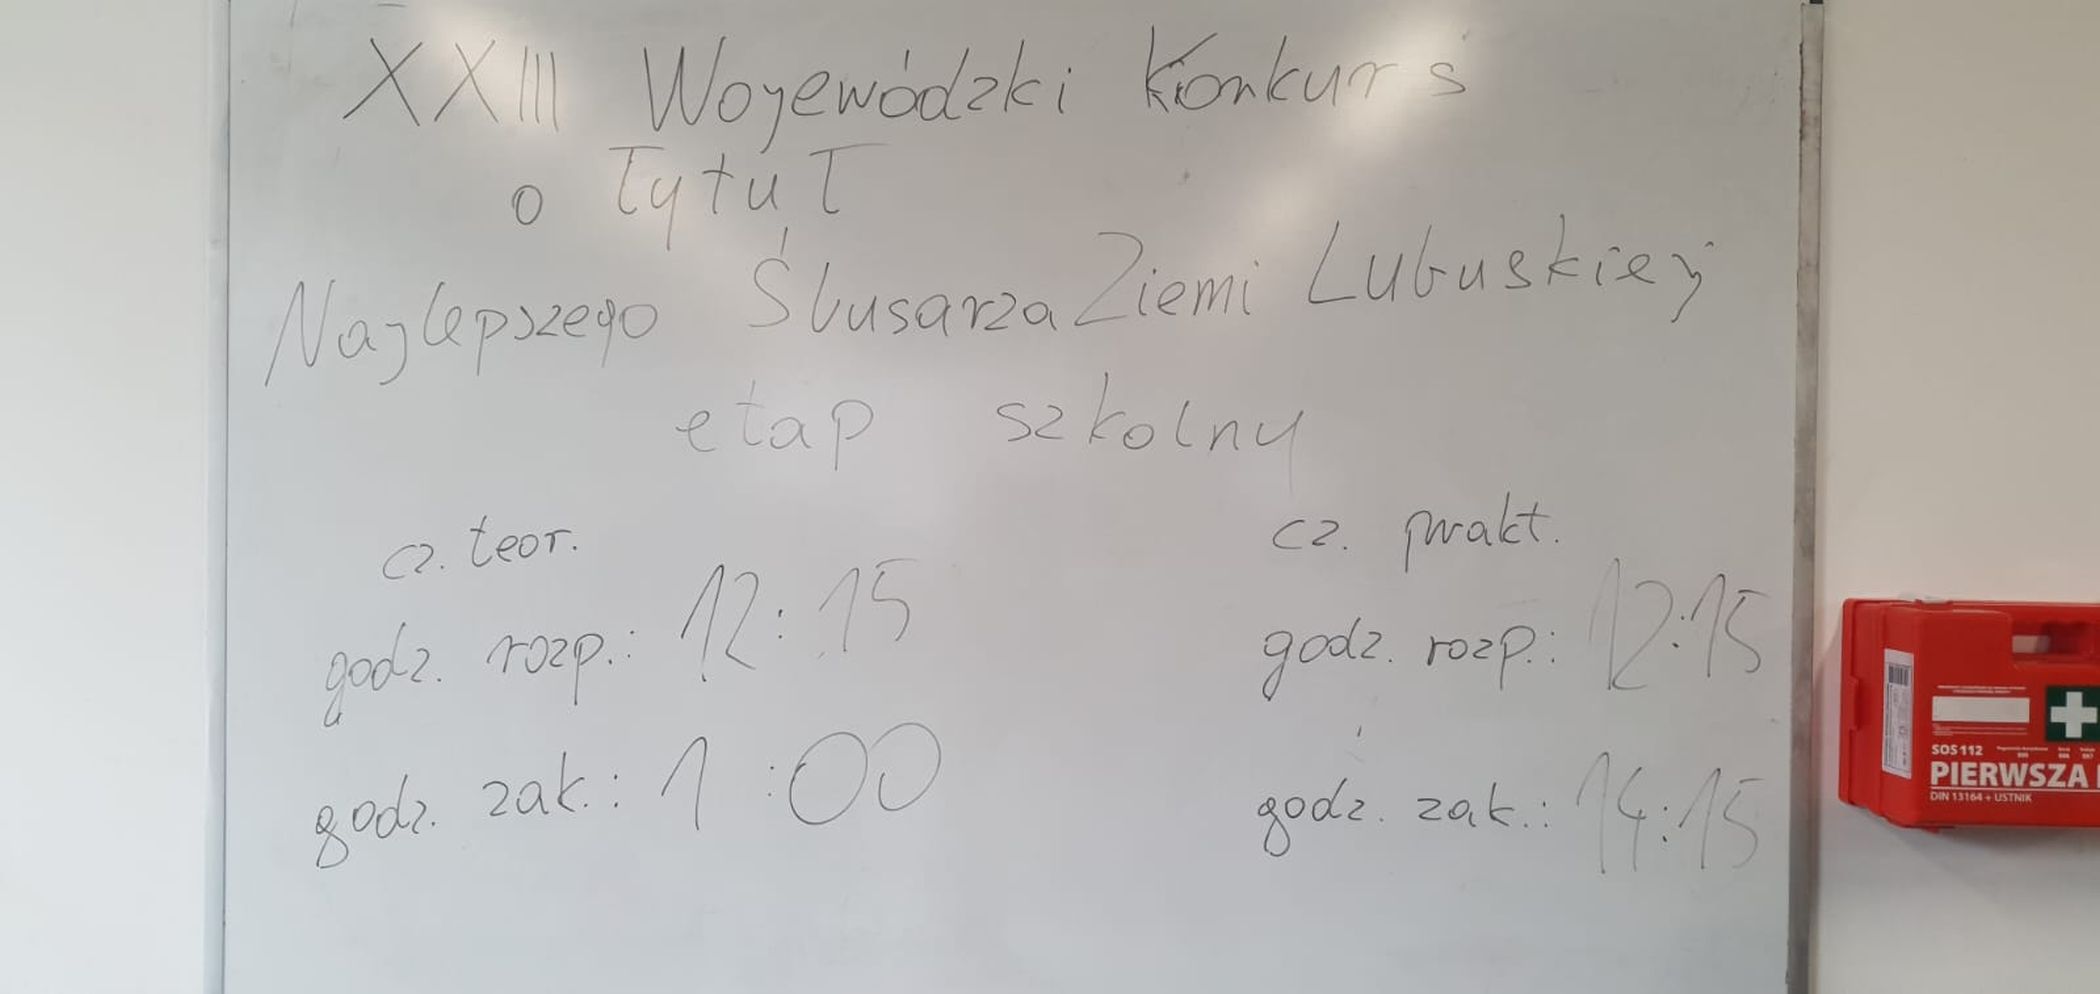 XXIII Wojewódzki Konkurs
o Tytuł
Najlepszego Ślusarza Ziemi Lubuskiej
etap szkolny
cz. teor.
godz. rozp.: 12:15
godz. zak.: 1 :00
cz. prakt.
godz. rozp.: 12:15
godz. zak.: 14:15
SOS 112
PIERWSZA
DIN 13164 + USTNIK